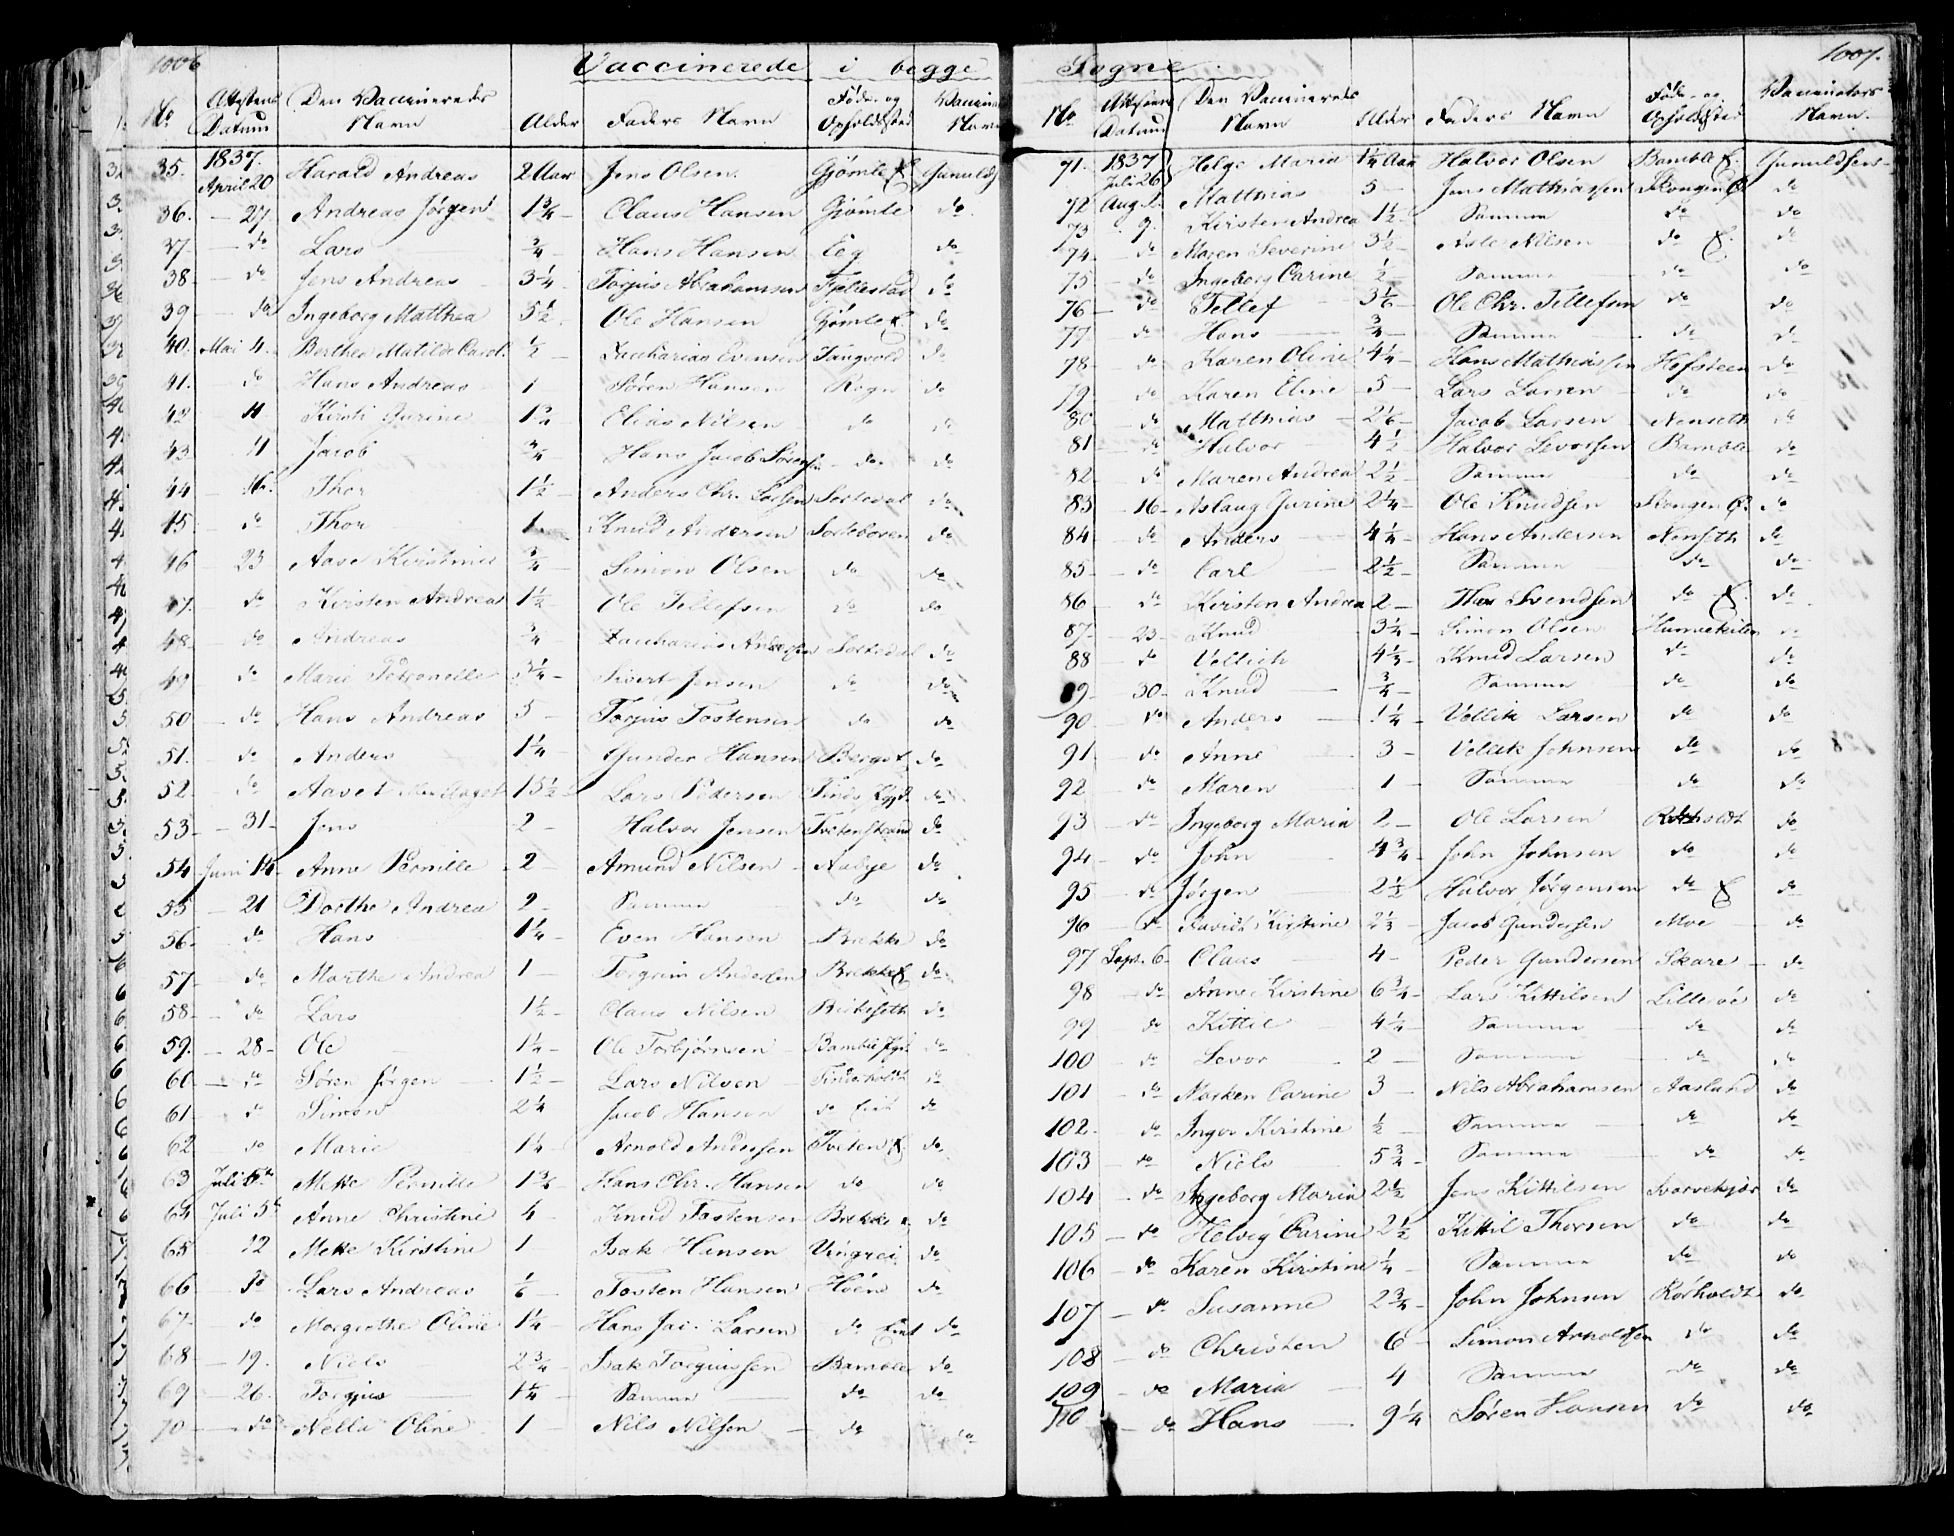 1006
Vaccinerede i begge
No Attestens Datum Den Vaccineredes Navn Alder Faders Navn Føde- og Opholdsted Navn
35. 1837. April 20 Harald Andreas 2 Aar Jens Olsen. Gjømle
36. – 27 Andreas Jørgen 1¾ – Claus Hansen Gjømle do
37 – do Lars ¾ – Hans Hansen Eeg do
38 – do Jens Andreas 3¼ – Torjus Abrahamsen do
39 – do Ingeborg Matthea 5½ Ole Hansen Gjømle do
40. Mai 4. Berthe Matilde Carol. ½ – Zacharias Evensen Tangvald do
41. do Hans Andreas 1 Søren Hansen Rogn do
42 – 4 Kirsti Gurine Elias Nilsen do do
43 4 Jacob ¾ Hans Jacob Sørensen – do do
44 – Thor 1½ – Anders Chr. Larsen do
45 – do Thor 1 Knud Andersen do
46 23 Aase Kirstine ¾ – Simon Olsen do do
47. do Kirsten Andrea 1½ – Ole Tellefsen do do
48 – do Andreas ¾ Zacharias Andersen do
49 do Marie Petronelle 3¼ – Sivert Jensen do do
50 – do Hans Andreas 5 – Torjus Tostensen do do
51. – do Anders 1¼ – Gunder Hansen do
52 – do 15½ Lars Pedersen do
53 – 31 – Jens 2 – Halvor Jensen Tvetenstrand do
54 Juni 14 – Anne Pernille – 2 – Amund Nilsen – do
55 – 21 Dorthe Andrea 2 – Samme do do
56 – do Hans 1¼ – Even Hansen Brekke do
57 – do Marthe Andrea 1 – Torgrim Andersen Brekke do
58 – do Lars 1½ – Claus Nilsen do
59. – 28 – Ole 1¼ – Ole Torbjørnsen – do
60 – do Søren Jørgen 1½ – Lars Nilsen – do
61 – do Simon 2¼ Jacob Hansen do do
62 do Marie 1¼ – Arnold Andersen Tveten do
63 Juli Mette Pernille Hans Chr. Hansen do do
64 Juli 5te Anne Christine 4 – Knud Tostensen Brekke do
65 – 12 Mette Kirstine 1 Isak Hansen do
66 do Lars Andreas Tosten Hansen Høen do
67. – do Margrethe Oline 1¼ – Hans Jac. Larsen do do
68 – 19. Niels 2¾ – Isak Torguissen Bamble do
69 – 26. Torgius 1¼ – Samme do do
70 – do Nella Oline 1 Nils Nilsen – do do
1007.
Sogne.
No Attestens Datum Den Vaccineredes Navn Alder Faders Navn Føde- og Opholdsted Vaccinators Navn.
71. 1837 Juli 26 Helge Maria 1¼ Aar Halvor Olsen Bamble
72 Aug. 2. Matthias 5 – Jens Mathiassen do
73 9. Kirsten Andrea 1½ – Samme do do
74 – do Maren Severine 3½ – Nilsen do do
75 – do Ingeborg Carine ½ – Samme do do
76 – do Tellef 3⅙ – Ole Chr. Tellefsen do do
77 – do Hans ¾ – Samme do do
78 – do Karen Oline 4¼ – Hans Mathiassen Hofsteen do
79 – do Karen Eline 5 – Lars Larsen do do
80 – do Matthias – 2⅙ – Jacob Larsen Nenseth do
81 – do Halvor 4½ – Halvor Levorsen Bamble do
82 – do Maren Andrea 2½ – Samme do do
83 – 16 – Aslaug Jurine 2¼ – Ole Knudsen do
84 – do Anders 4¼ – Hans Andersen Nenseth do
85 – do Carl 2½ – Samme do do
86 – do Kirsten Andrea 2 – Thor Svendsen do do
87 – 23 – Knud 3¼ – Simon Olsen do
88 – do Vellich 4⅓ – Knud Larsen do do
89 – 30 – Knud ¾ – Samme do do
90 – do Anders 1¼ – Vellik Larsen do do
91 – do Anne 3 – Vellik Johnsen do do
92 – do Maren 1 – Samme do do
93 – do Ingeborg Maria 2 – Ole Larsen do
94 – do John 4¾ – John Johnsen do do
95 – do Jørgen 2½ Halvor Jørgensen do do
96 – do Kirstine 2⅓ Jacob Gundersen Moe do
97 Sept. 6 – Claus 4 – Peder Gundersen Skare – do
98 – do Anne Kirstine 6¾ – Lars Kittilsen Lilleøe do
99 do Kittil 4¼ – Samme do do
100 – do Levor 2 – Samme do do
101 – do Marken Carine 3 – Nils Abrahamsen Aasland do
102. – do Inger Kirstine ½ – Samme do do
103 – do Niels 5¾ – Samme do do
104 – do Ingeborg Maria 2½ Jens Kittilsen do
105 – do Helvig Carine 2½ Kittil Thorsen do do
106 – do Karen Kirstine ¼ – Samme do do
107 – do Susanne 2¾ – John Johnsen Rörholdt do
108 – do Christen 6 – Simon Arnoldsen do do
109 – do Maria 4 Samme do do
110 – do Hans – 9¼ Søren Hansen do do